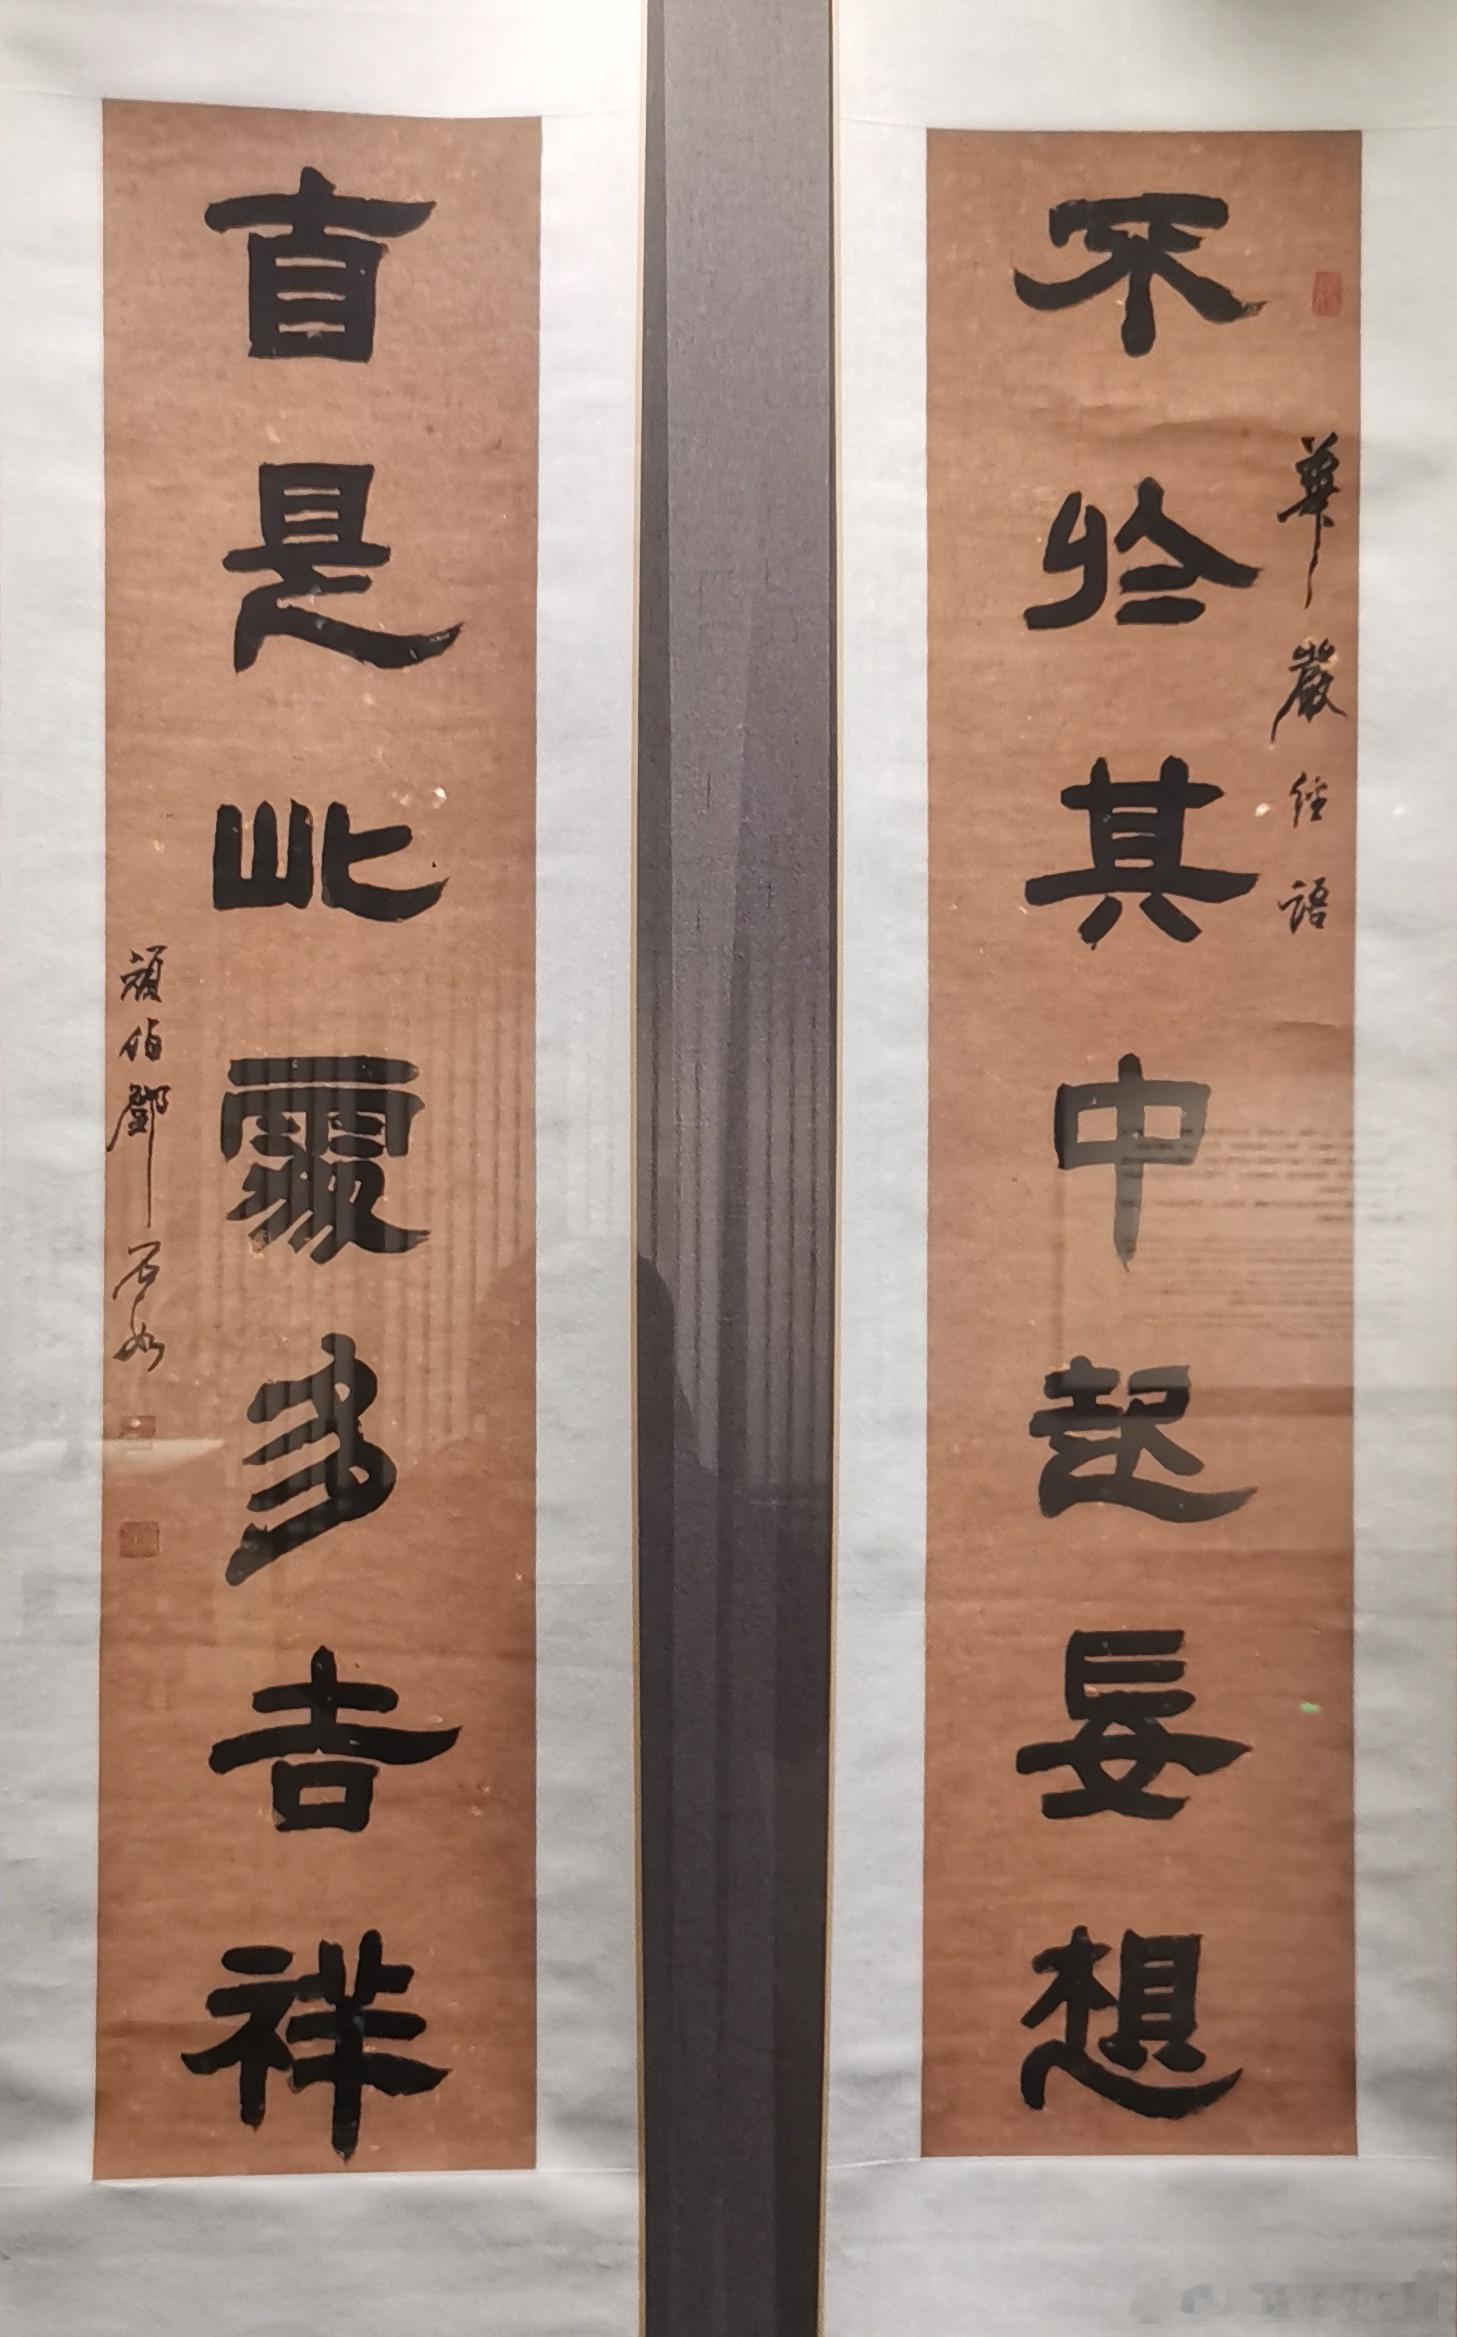 不於其中起妄想
華嚴經語
直是此處多吉祥
頑伯鄧石如